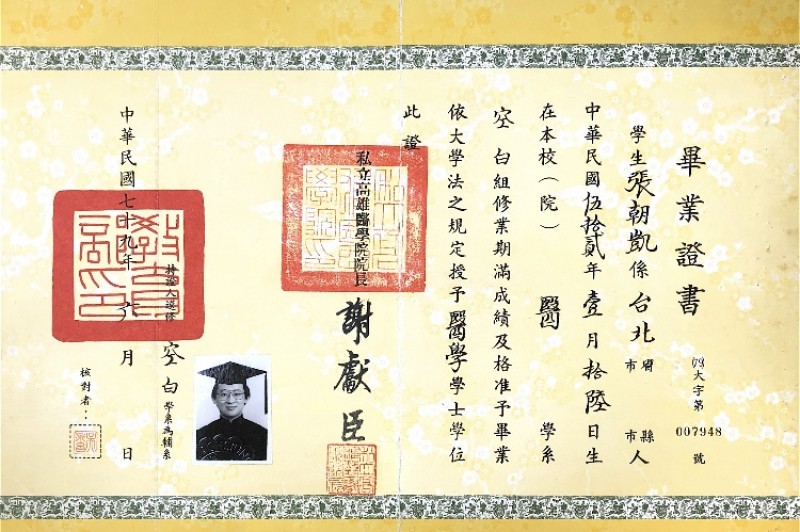 畢業證書
大字第
007948
號
學生張朝凱係台北市縣人
中華民國伍拾貳年壹月拾陸日生
在本校(院)醫學系
空白組修業期滿成績及格准予畢業
依大學法之規定授予醫學學士學位
此證
私立高雄醫學院院長
謝獻臣
持證人選修空白學系為輔系
中華民國七十九年六月 日
核對者：